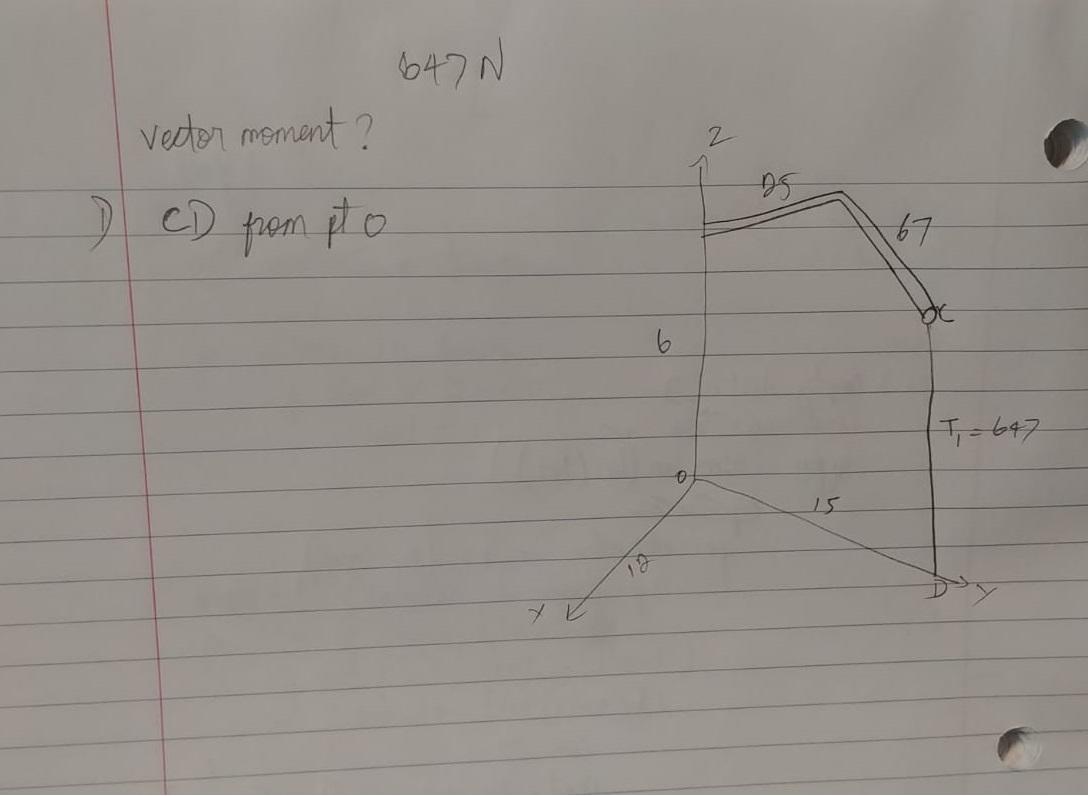 647 N
vector moment?
1) CD from pt O
Z
25
67
C
6
T₁ = 647
O
15
12
X
D
Y